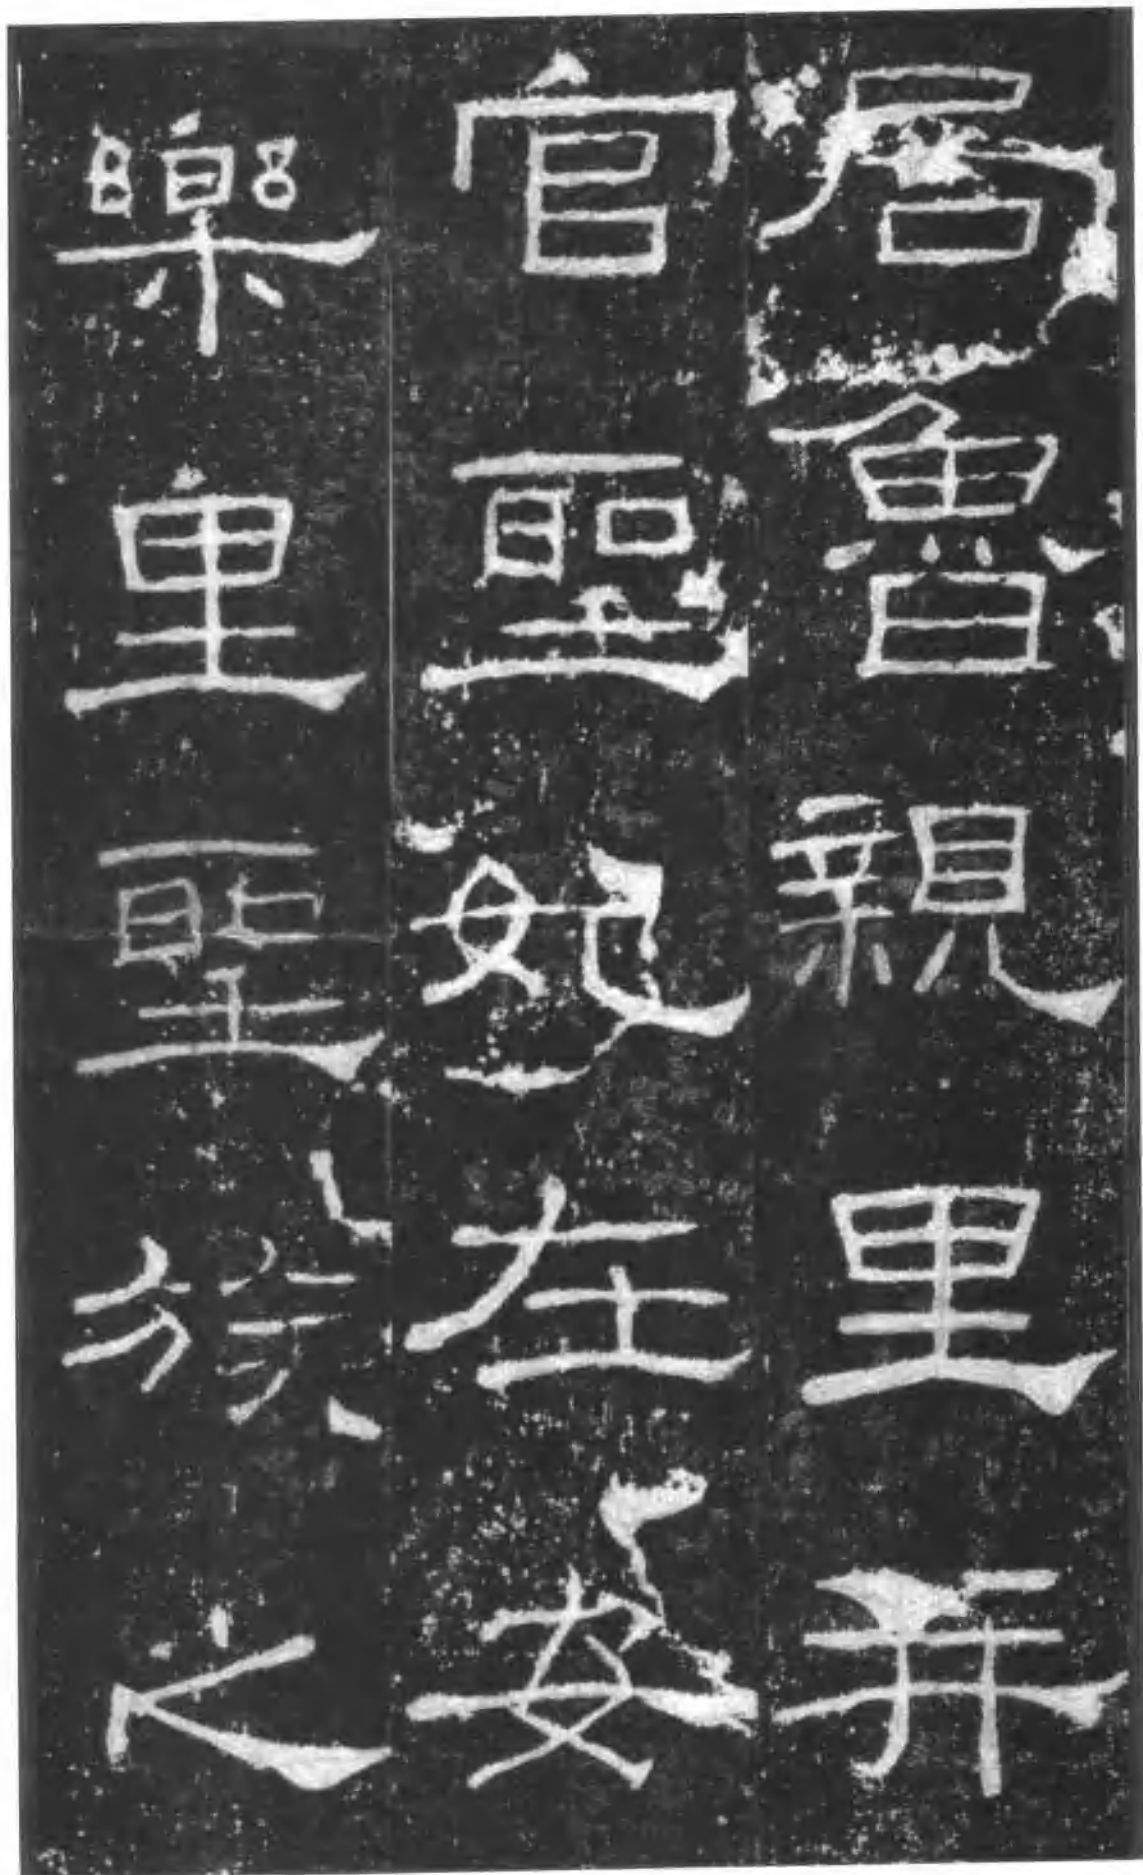 居魯親里并
官聖妃在安
樂里聖族之